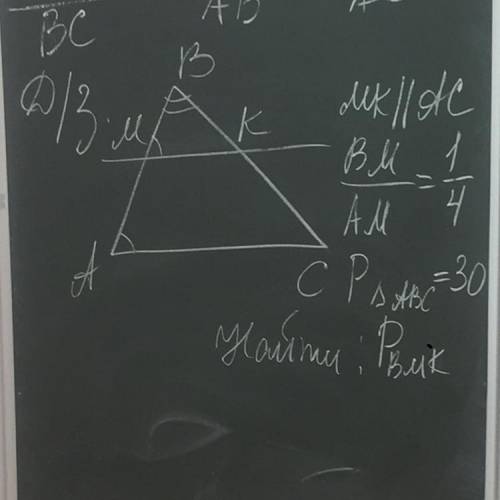 BC AB
Д/З
B
M K
A C
MK || AC
BM/AM = 1/4
P△ABC = 30
Найти: PBMK